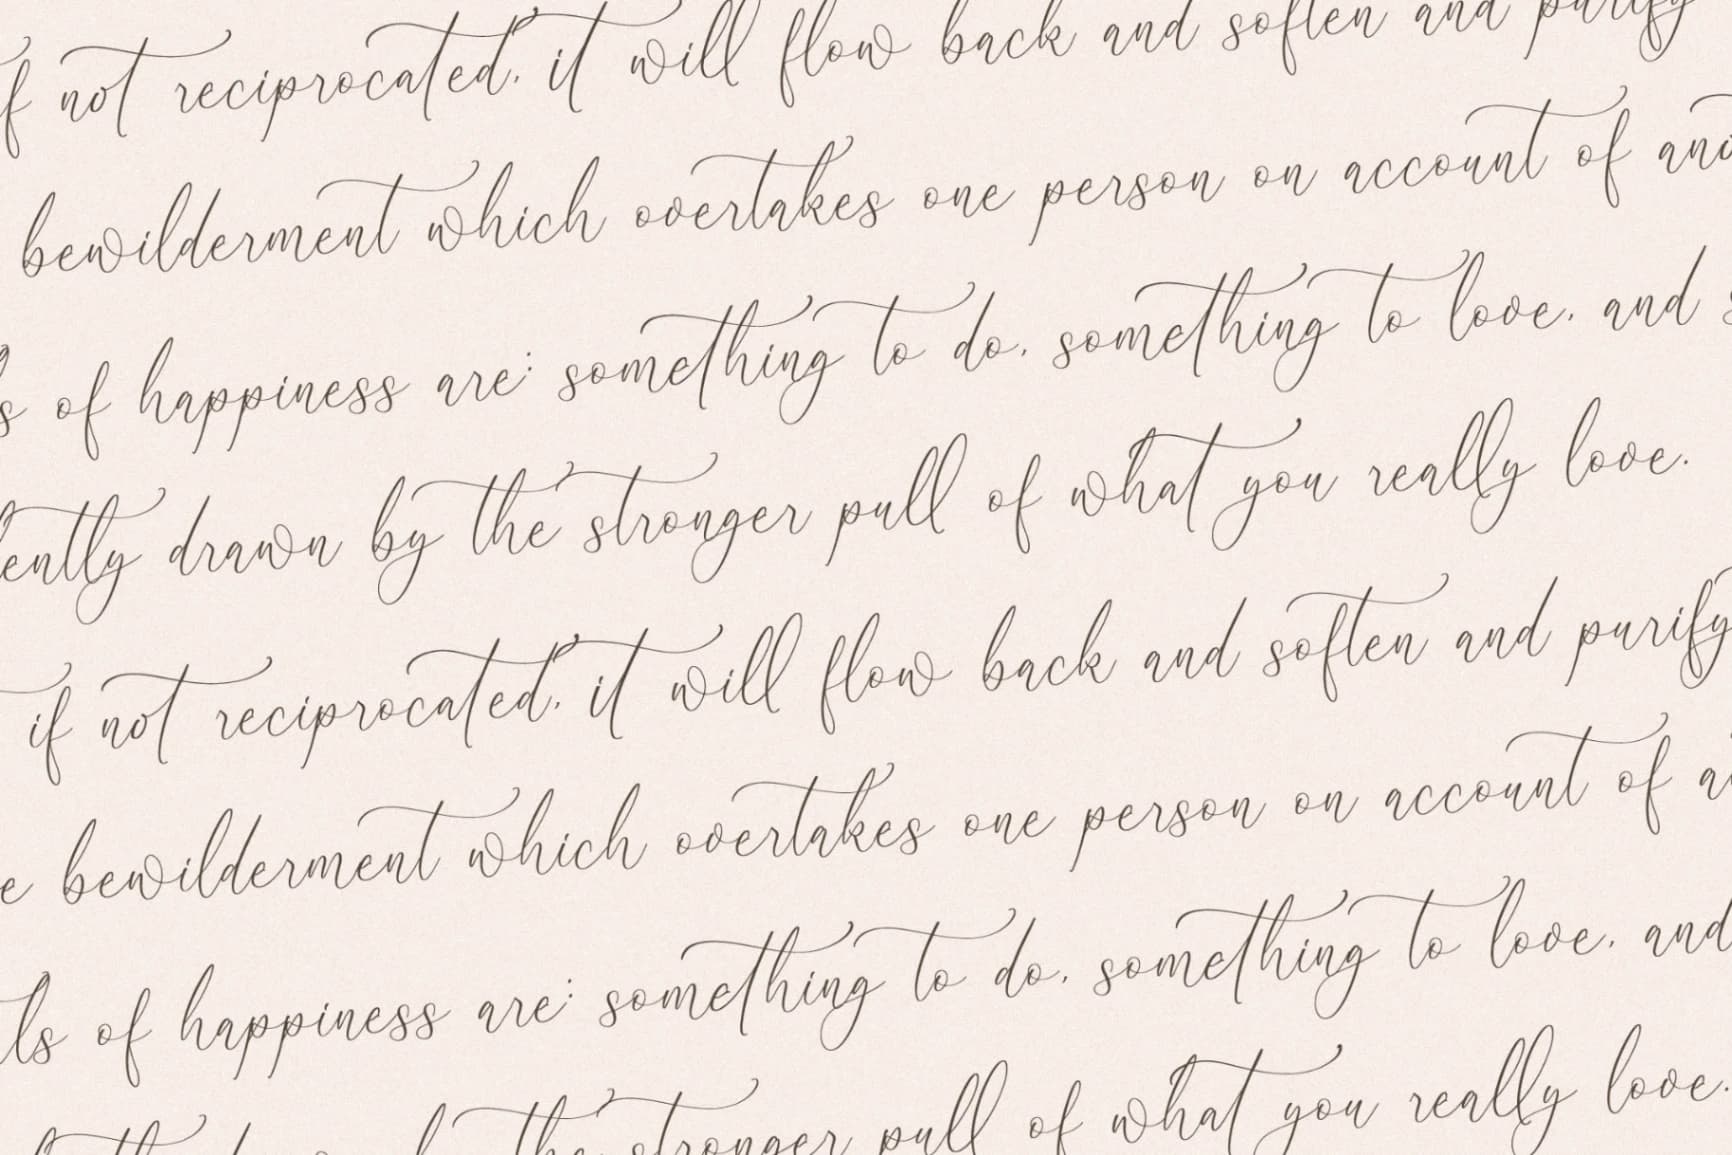 if not reciprocated, it will flow back and soften and purify
bewilderment which overtakes one person on account of
of happiness are: something to do, something to love, and
drawn by the stronger pull of what you really love.
if not reciprocated, it will flow back and soften and purify
bewilderment which overtakes one person on account of
of happiness are: something to do, something to love, and
the stronger pull of what you really love.